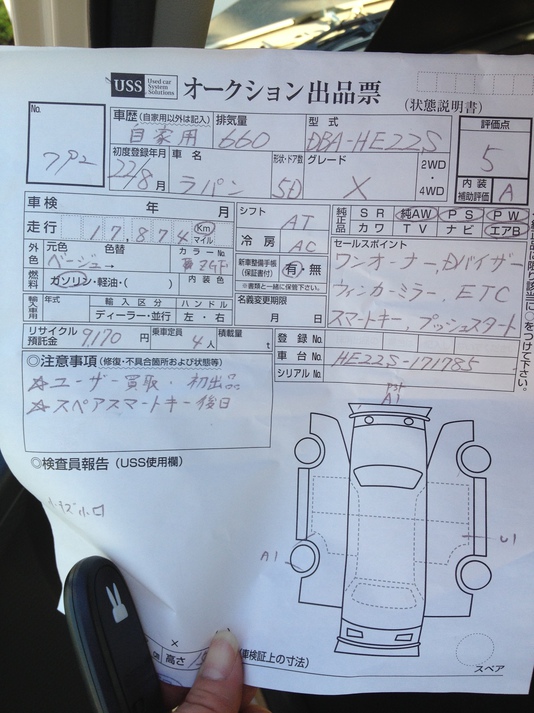 USS Used car System Solutions オークション出品票 (状態説明書)
No.
車歴(自家用以外は記入) 排気量 型式 評価点
自家用 660 DBA-HE22S 5
初度登録年月 車名 形状・ドア数 グレード 2WD・4WD 内装補助評価 A
22/8月 ラパン 5D X
車検 年 月 シフト AT 純正品 SR 純AW PS PW
カワ TV ナビ エアB
走行 17,874 Km マイル 冷房 AC セールスポイント
外色 元色 色替 カラーNo.
ベージュ→ ZGF 新車整備手帳(保証書付) 有・無 ワンオーナー、Dバイザー
※書類と一緒に保管下さい。
燃料 ガソリン・軽油・( ) 内装色 ウィンカーミラー、ETC
輸入車用 年式 輸入区分 ハンドル 名義変更期限
ディーラー・並行 左・右 月 日 スマートキー、プッシュスタート
リサイクル預託金 9,170円 乗車定員 4人 積載量 t
登録No.
車台No. HE22S-171785
シリアルNo.
◎注意事項(修復・不具合箇所および状態等)
☆ユーザー買取・初出品
☆スペアスマートキー後日
A1
◎検査員報告(USS使用欄)
キズ小口
U1
A1
×
高さ
車検証上の寸法)
スペア